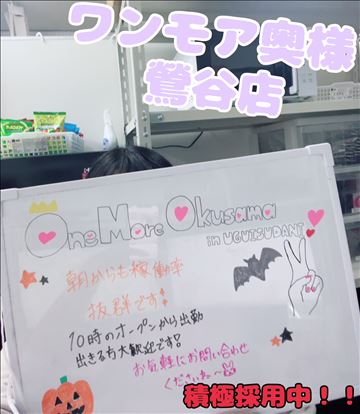 ワンモア奥様
鶯谷店
One More Okusama
in UGUISUDANI
朝からも稼働率
抜群です!
10時のオープンから出勤
出きる方大歓迎です♡
お気軽にお問い合わせ
くださいね〜
積極採用中!!